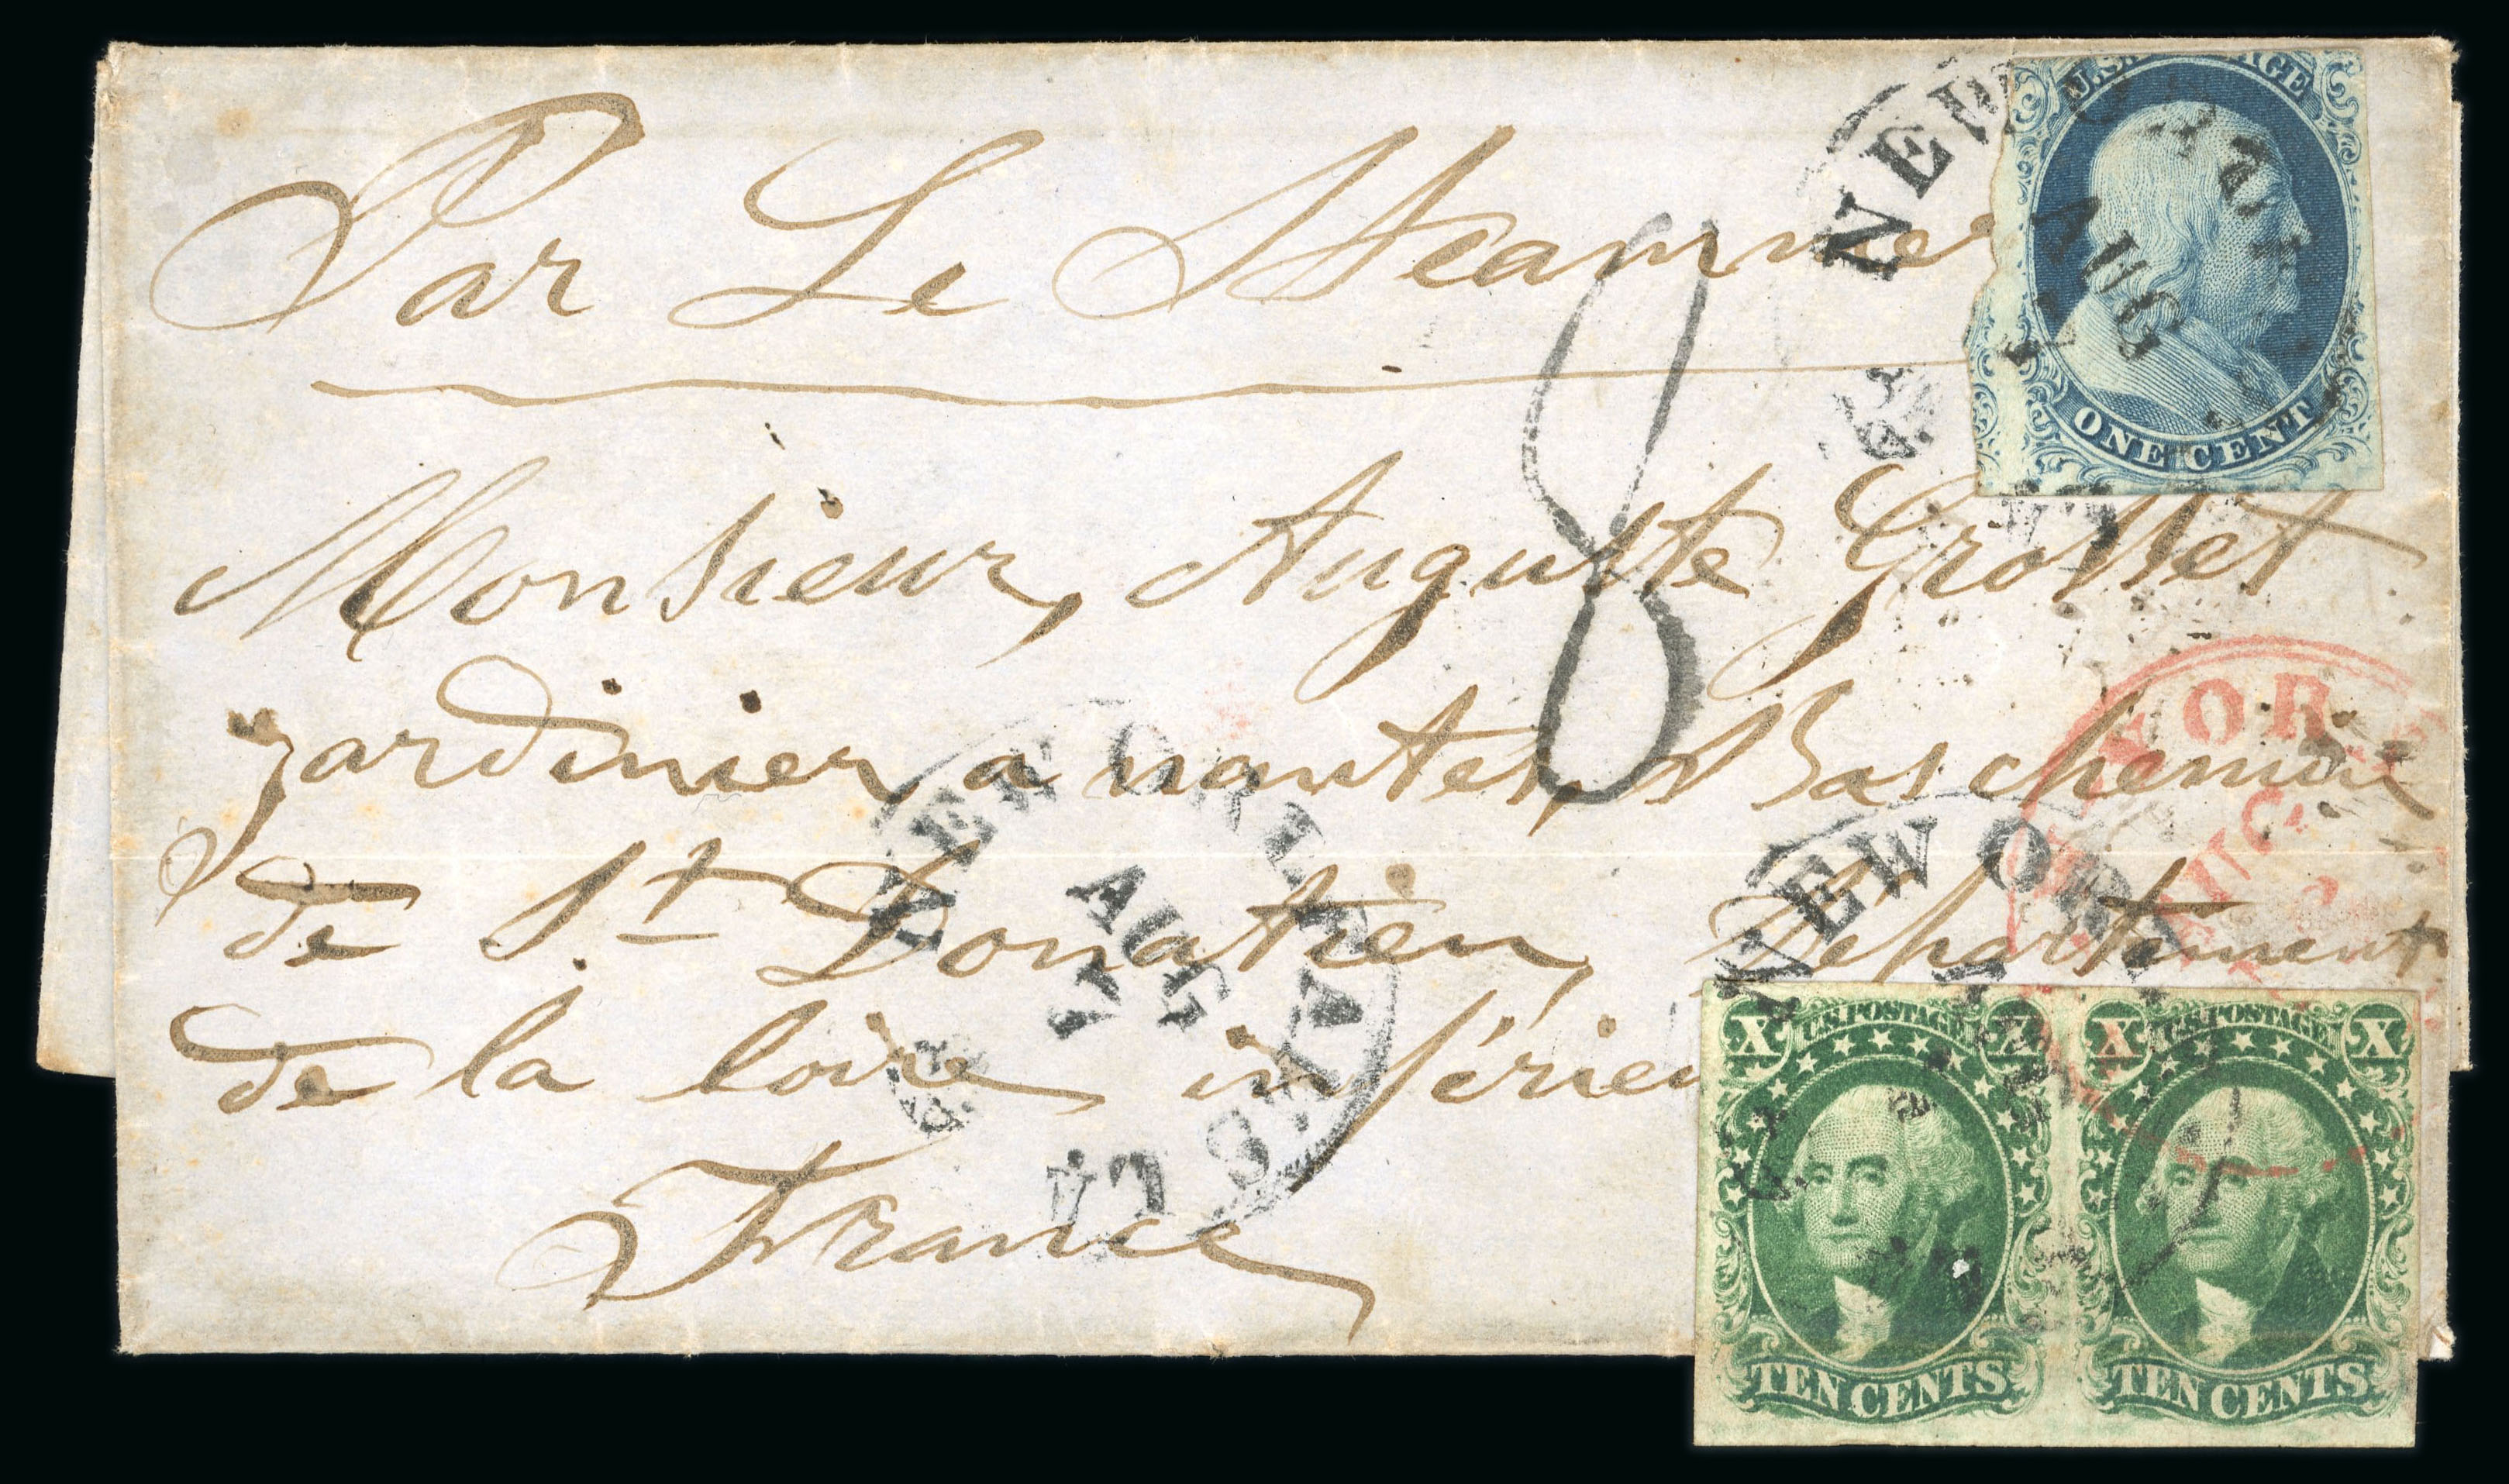 Par Le Steamer
Monsieur, Auguste Grosset
jardinier, a nantes, Bas chemin
de St Donatien, Departement
de la loire inférieu
France
8
NEW ORL
AUG
U.S. POSTAGE
ONE CENT
NEW ORLEANS LA
AUG
NEW YOR
AUG
NEW OR
X U.S. POSTAGE X
TEN CENTS
X U.S. POSTAGE X
TEN CENTS